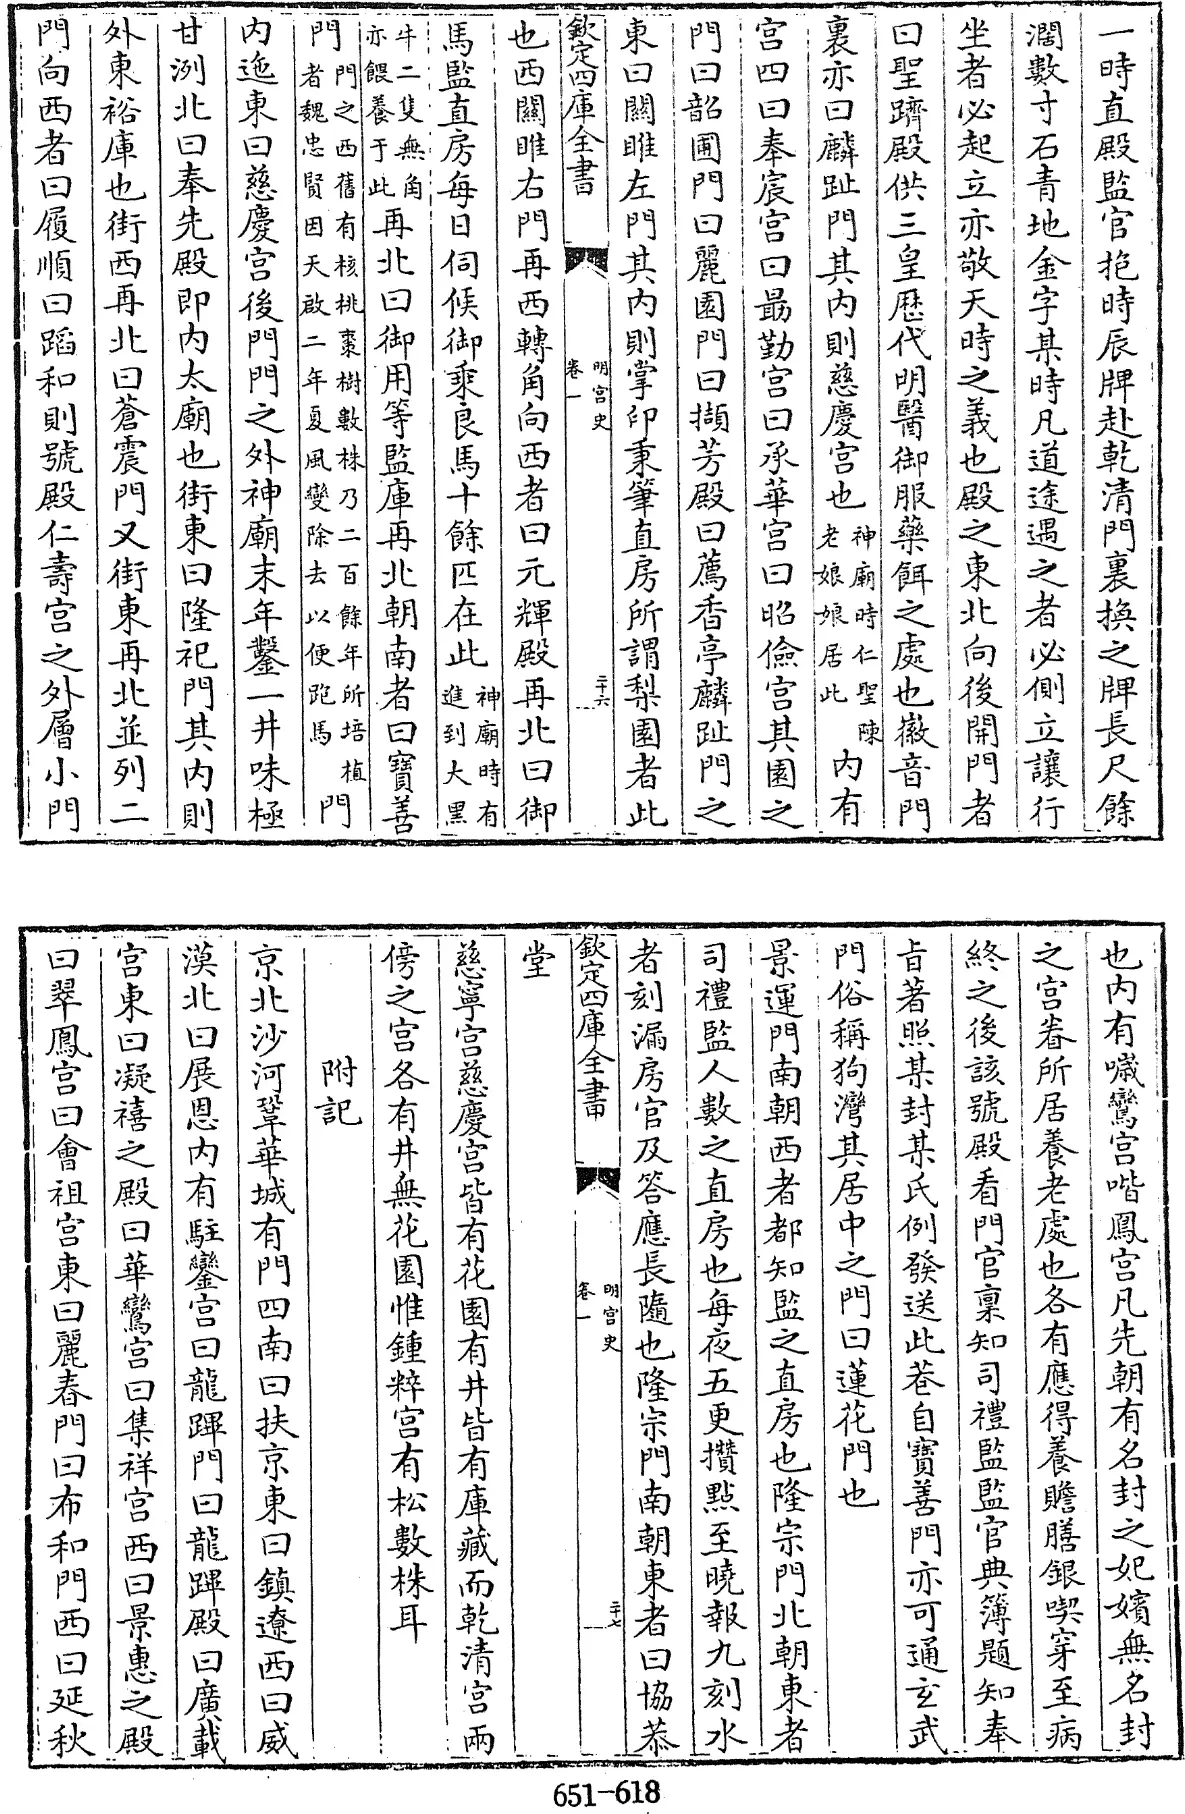 一時直殿監官抱時辰牌赴乾清門裏換之牌長尺餘
濶數寸石青地金字某時凡道途遇之者必側立讓行
坐者必起立亦敬天時之義也殿之東北向後開門者
曰聖躋殿供三皇歷代明醫御服藥餌之處也徽音門
裏亦曰麟趾門其内則慈慶宮也神廟時仁聖陳老娘娘居此内有
宮四曰奉宸宮曰勗勤宮曰承華宮曰昭儉宮其園之
門曰韶圃門曰麗園門曰擷芳殿曰薦香亭麟趾門之
東曰關睢左門其内則掌印秉筆直房所謂梨園者此
欽定四庫全書 明宮史 卷一 二十六
也西關睢右門再西轉角向西者曰元輝殿再北曰御
馬監直房每日伺候御乘良馬十餘匹在此神廟時有進到大黑
牛二隻無角亦餵養于此再北曰御用等監庫再北朝南者曰寶善
門門之西舊有核桃棗樹數株乃二百餘年所培植者魏忠賢因天啟二年夏風變除去以便跑馬門
内迤東曰慈慶宮後門門之外神廟末年鑿一井味極
甘洌北曰奉先殿即内太廟也街東曰隆祀門其内則
外東裕庫也街西再北曰蒼震門又街東再北並列二
門向西者曰履順曰蹈和則號殿仁壽宮之外層小門
也内有噦鸞宮喈鳳宮凡先朝有名封之妃嬪無名封
之宮眷所居養老處也各有應得養贍膳銀喫穿至病
終之後該號殿看門官稟知司禮監監官典簿題知奉
旨著照某封某氏例發送此巷自寶善門亦可通玄武
門俗稱狗灣其居中之門曰蓮花門也
景運門南朝西者都知監之直房也隆宗門北朝東者
司禮監人數之直房也每夜五更攢點至曉報九刻水
者刻漏房官及答應長隨也隆宗門南朝東者曰協恭
欽定四庫全書 明宮史 卷一 二十七
堂
慈寧宮慈慶宮皆有花園有井皆有庫藏而乾清宮兩
傍之宮各有井無花園惟鍾粹宮有松數株耳
附記
京北沙河鞏華城有門四南曰扶京東曰鎮遼西曰威
漠北曰展恩内有駐鑾宮曰龍踔門曰龍踔殿曰廣載
宮東曰凝禧之殿曰華鸞宮曰集祥宮西曰景惠之殿
曰翠鳳宮曰會祖宮東曰麗春門曰布和門西曰延秋
651-618